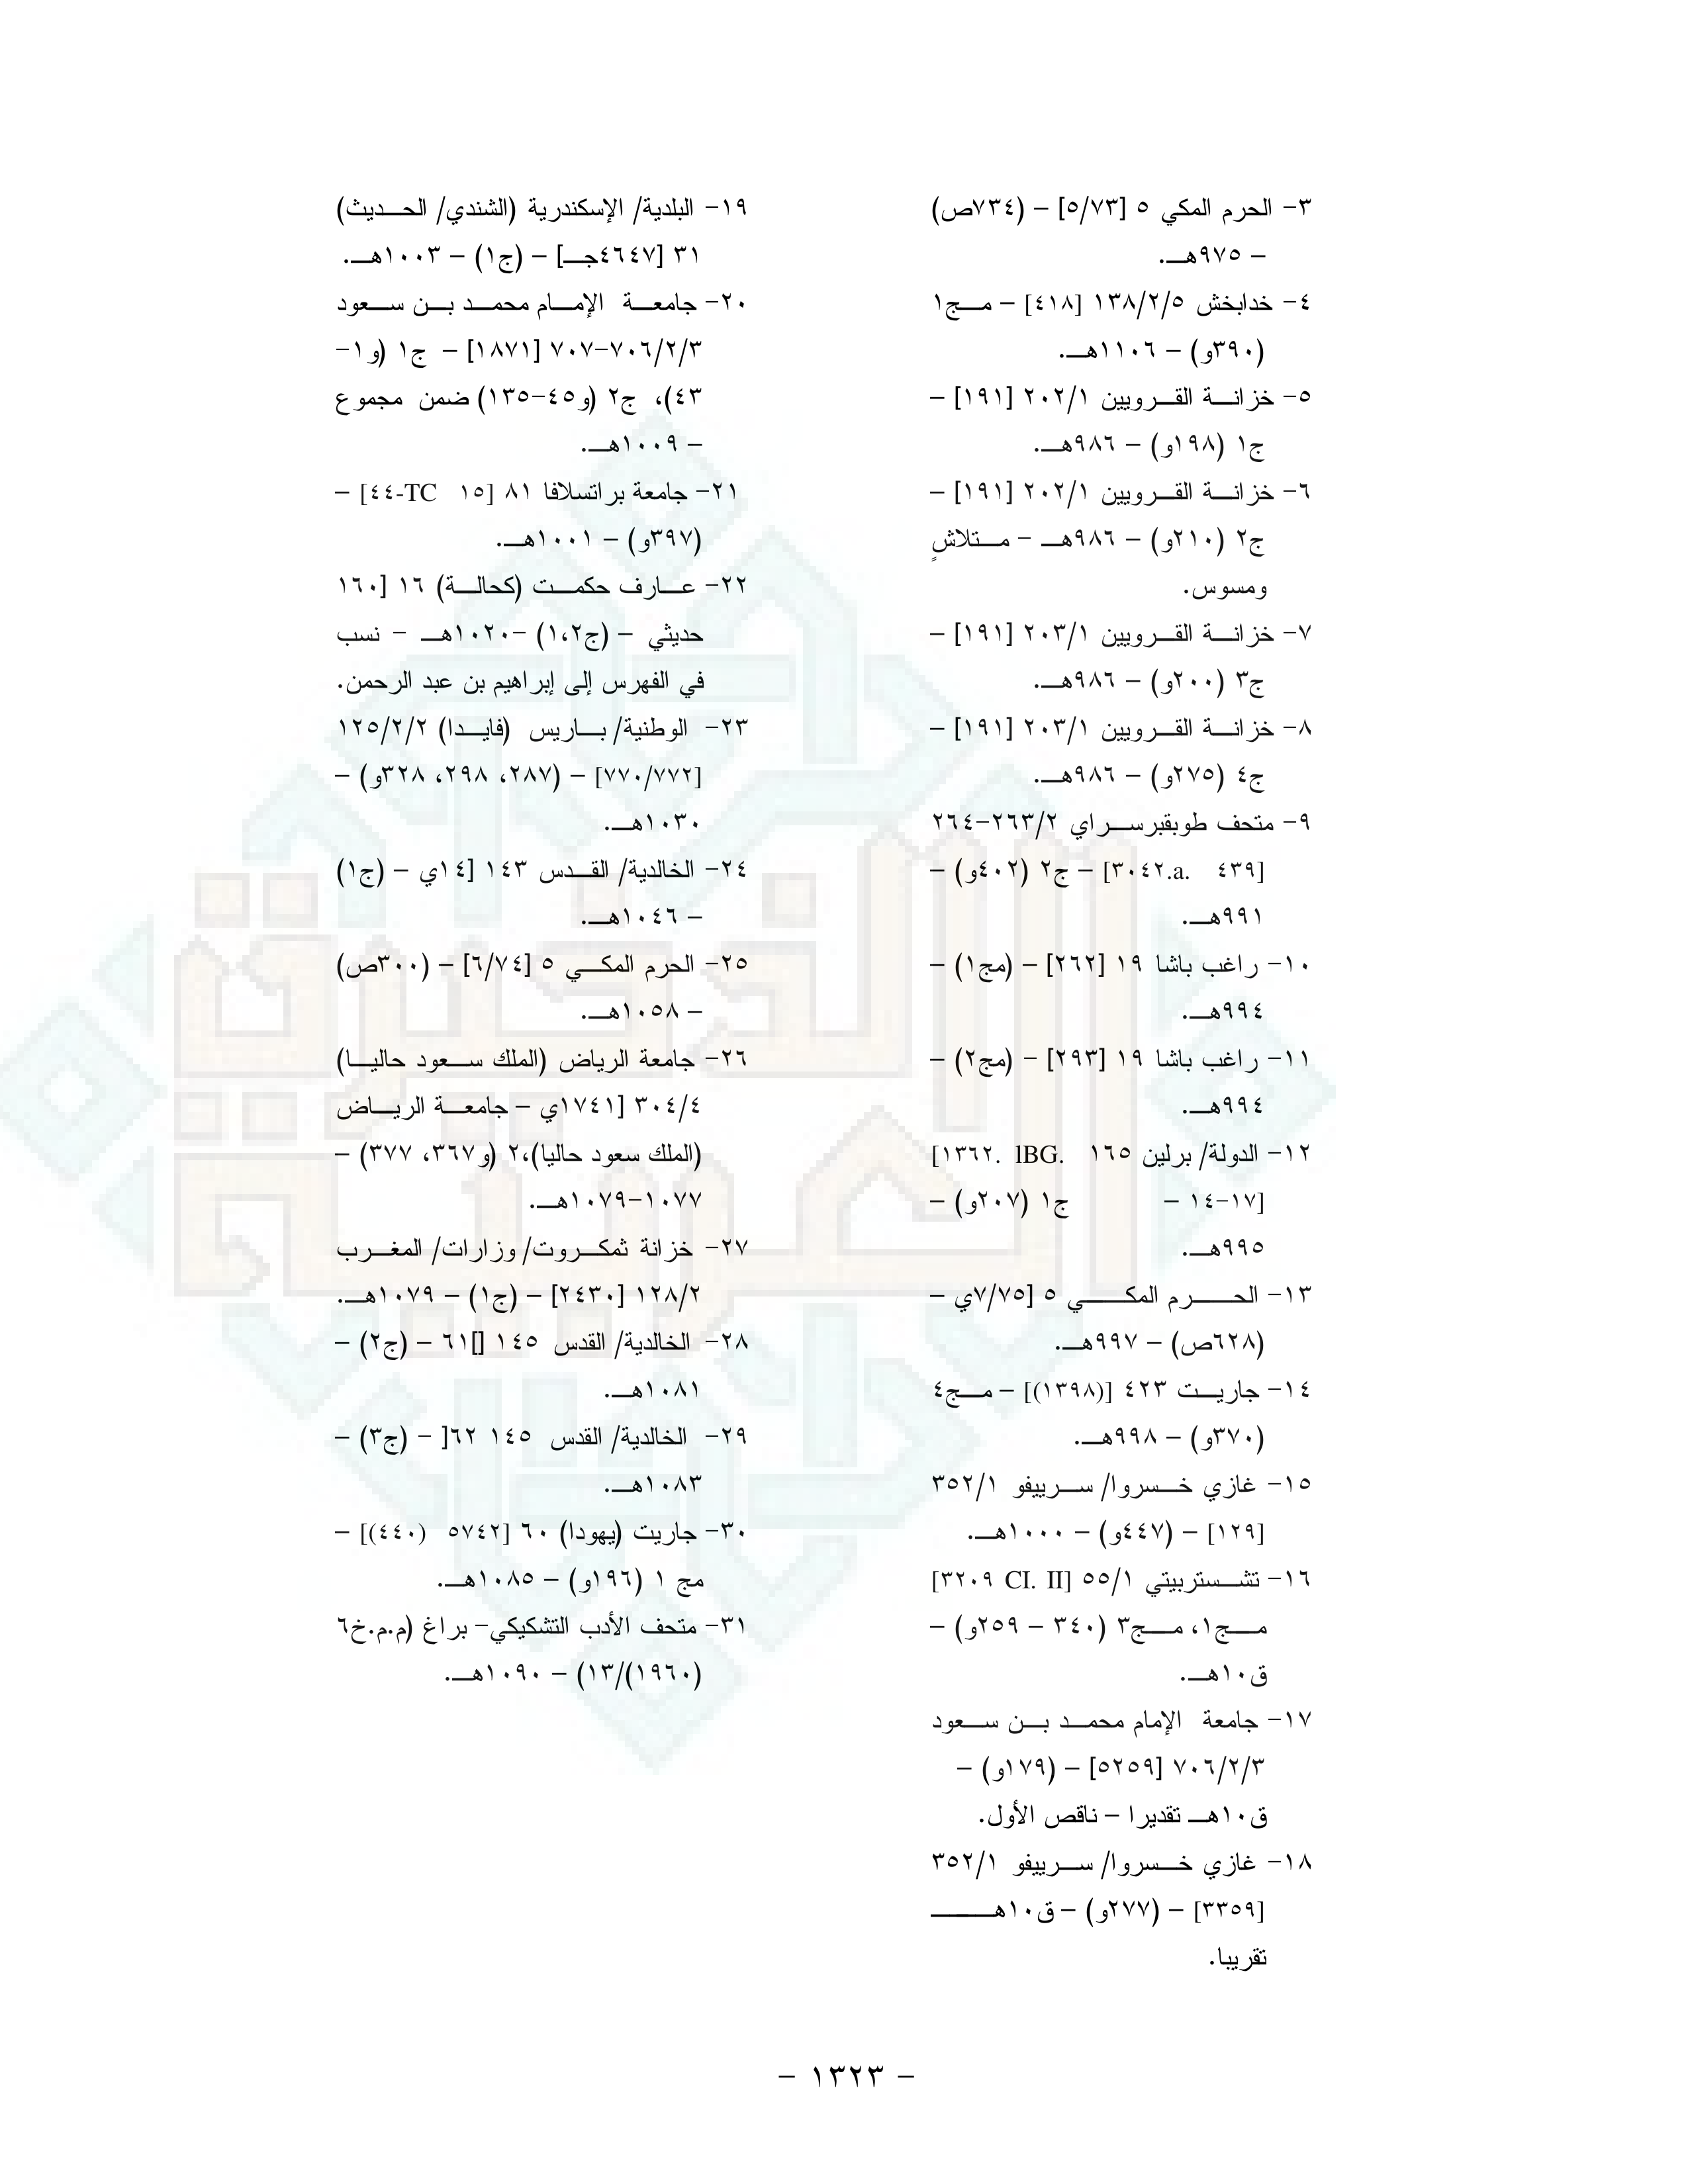 ٣- الحرم المكي ٥ [٥/٧٣] – (٧٣٤ص)
– ٩٧٥هـ.
٤- خدابخش ١٣٨/٢/٥ [٤١٨] – مج١
(٣٩٠و) – ١١٠٦هـ.
٥- خزانة القرويين ٢٠٢/١ [١٩١] –
ج١ (١٩٨و) – ٩٨٦هـ.
٦- خزانة القرويين ٢٠٢/١ [١٩١] –
ج٢ (٢١٠و) – ٩٨٦هـ – متلاشٍ
ومسوس.
٧- خزانة القرويين ٢٠٣/١ [١٩١] –
ج٣ (٢٠٠و) – ٩٨٦هـ.
٨- خزانة القرويين ٢٠٣/١ [١٩١] –
ج٤ (٢٧٥و) – ٩٨٦هـ.
٩- متحف طوبقبرسراي ٢٦٣/٢-٢٦٤
[٤٣٩ .a.٣٠٤٢] – ج٢ (٤٠٢و) –
٩٩١هـ.
١٠- راغب باشا ١٩ [٢٦٢] – (مج١) –
٩٩٤هـ.
١١- راغب باشا ١٩ [٢٩٣] – (مج٢) –
٩٩٤هـ.
١٢- الدولة/ برلين ١٦٥ .lBG .١٣٦٢]
[١٧-١٤ – ج١ (٢٠٧و) –
٩٩٥هـ.
١٣- الحرم المكي ٥ [٧/٧٥ي –
(٦٢٨ص) – ٩٩٧هـ.
١٤- جاريت ٤٢٣ [(١٣٩٨)] – مج٤
(٣٧٠و) – ٩٩٨هـ.
١٥- غازي خسروا/ سرييفو ٣٥٢/١
[١٢٩] – (٤٤٧و) – ١٠٠٠هـ.
١٦- تشستربيتي ٥٥/١ [٣٢٠٩ CI. II]
مج١، مج٣ (٣٤٠ – ٢٥٩و) –
ق١٠هـ.
١٧- جامعة الإمام محمد بن سعود
٧٠٦/٢/٣ [٥٢٥٩] – (١٧٩و) –
ق١٠هـ تقديرا – ناقص الأول.
١٨- غازي خسروا/ سرييفو ٣٥٢/١
[٣٣٥٩] – (٢٧٧و) – ق١٠هـ
تقريبا.
١٩- البلدية/ الإسكندرية (الشندي/ الحديث)
٣١ [٤٦٤٧جـ] – (ج١) – ١٠٠٣هـ.
٢٠- جامعة الإمام محمد بن سعود
٧٠٦/٢/٣-٧٠٧ [١٨٧١] – ج١ (و١-
٤٣)، ج٢ (و٤٥-١٣٥) ضمن مجموع
– ١٠٠٩هـ.
٢١- جامعة براتسلافا ٨١ [١٥ TC-٤٤] –
(٣٩٧و) – ١٠٠١هـ.
٢٢- عارف حكمت (كحالة) ١٦ [١٦٠
حديثي – (ج١،٢) -١٠٢٠هـ – نسب
في الفهرس إلى إبراهيم بن عبد الرحمن.
٢٣- الوطنية/ باريس (فايدا) ١٢٥/٢/٢
[٧٧٠/٧٧٢] – (٢٨٧، ٢٩٨، ٣٢٨و) –
١٠٣٠هـ.
٢٤- الخالدية/ القدس ١٤٣ [١٤ي – (ج١)
– ١٠٤٦هـ.
٢٥- الحرم المكي ٥ [٦/٧٤] – (٣٠٠ص)
– ١٠٥٨هـ.
٢٦- جامعة الرياض (الملك سعود حاليا)
٣٠٤/٤ [١٧٤١ي – جامعة الرياض
(الملك سعود حاليا)،٢ (و٣٦٧، ٣٧٧) –
١٠٧٧-١٠٧٩هـ.
٢٧- خزانة ثمكروت/ وزارات/ المغرب
١٢٨/٢ [٢٤٣٠] – (ج١) – ١٠٧٩هـ.
٢٨- الخالدية/ القدس ١٤٥ []٦١ – (ج٢) –
١٠٨١هـ.
٢٩- الخالدية/ القدس ١٤٥ ٦٢[ – (ج٣) –
١٠٨٣هـ.
٣٠- جاريت (يهودا) ٦٠ [٥٧٤٢ (٤٤٠)] –
مج ١ (١٩٦و) – ١٠٨٥هـ.
٣١- متحف الأدب التشكيكي- براغ (م.م.خ٦
(١٩٦٠)/١٣) – ١٠٩٠هـ.
– ١٣٢٣ –
الذخيرة
العربية